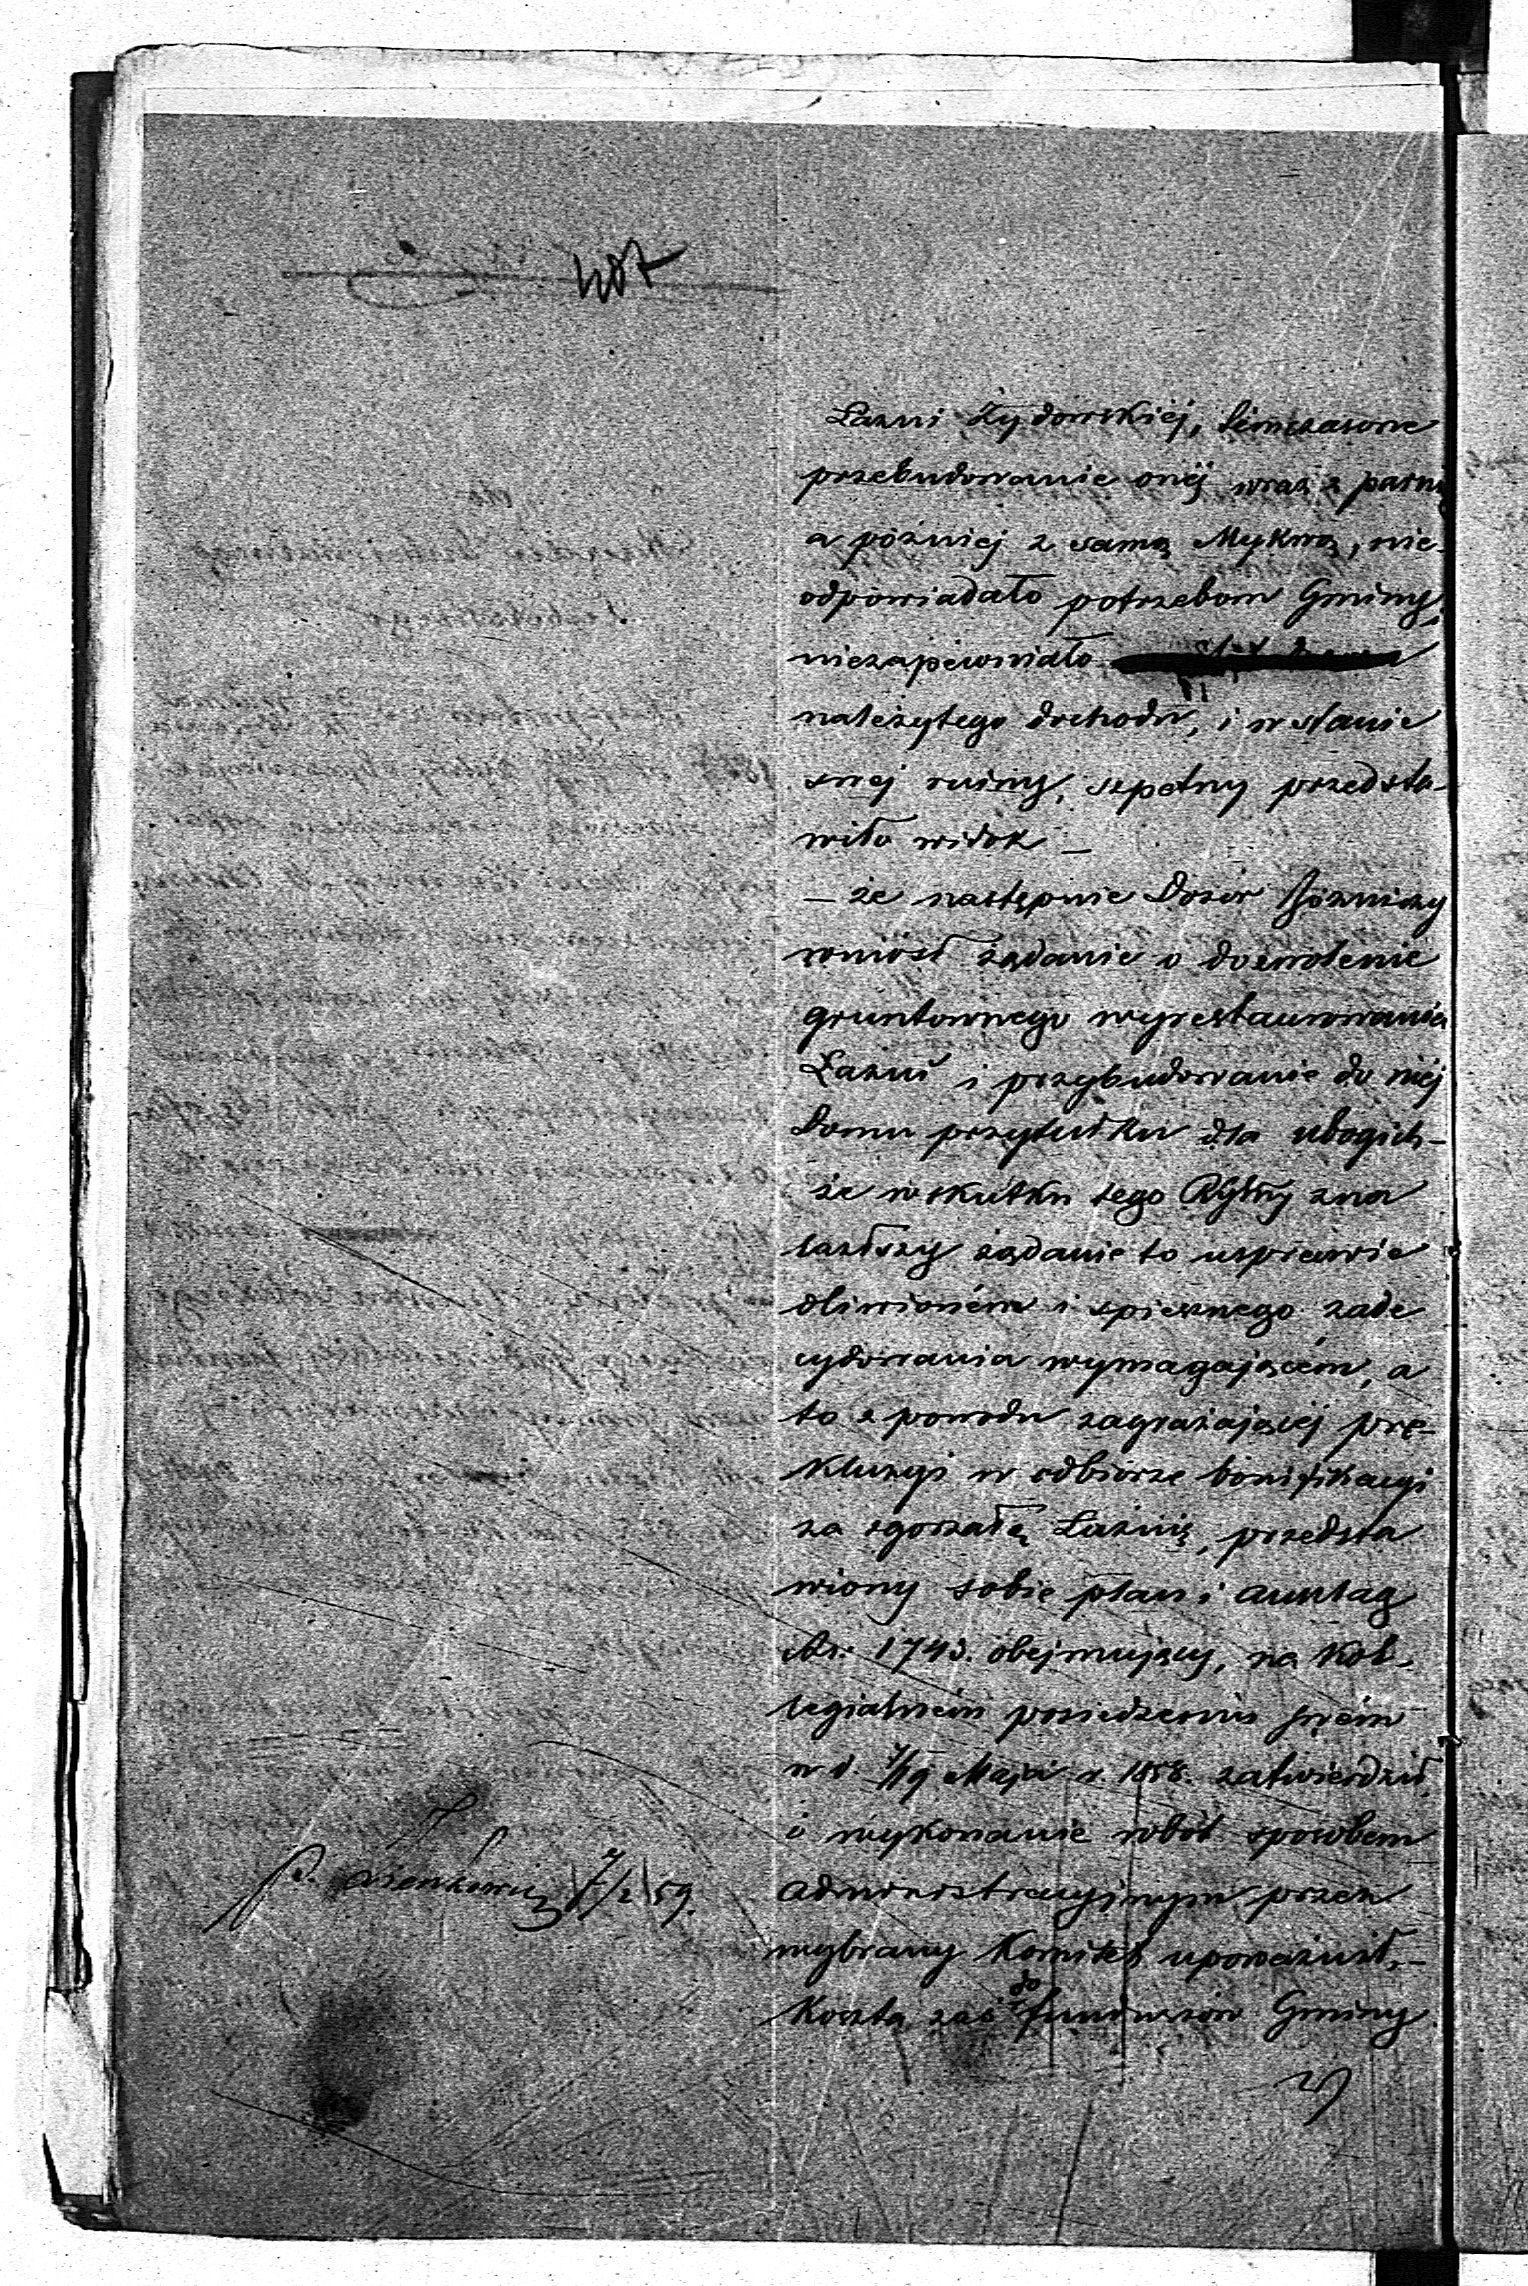 487
Łaźni Żydowskiéj, timczasowe
przebudowanie onéj wraz z parnią
a późniéj z samą Mykwą, nie-
odpowiadało potrzebom Gminy,
niezapewniało
należytego dochodu, i w stanie
swej ruiny, szpetny przedsta-
wiło widok —
— że następnie Dozór Bóżniczy
wniósł żądanie o dozwolenie
gruntownego wyrestaurowania
Łaźni i przybudowanie do niéj
Domu przytułku dla ubogich —
że w skutku tego Rząd Gbny zna
lazłszy żądanie to usprawie
dliwioném i spiesznego zade
cydowania wymagającém, a
to z powodu zagrażającéj pre-
kluzyi w odbiorze bonifikacyi
za zgorzałą Łaźnię, przedsta
wiony sobie plan i anszlag
Rs: 1743. obejmujący, na Kol-
legialném posiedzeniu swém
w d. 7/19 Maja r. 1858. zatwierdził
i wykonanie robót sposobem
administracyjnym przez
wybrany Komitet upoważnił, —
Koszta zaś do funduszów Gminy
7/2 59.